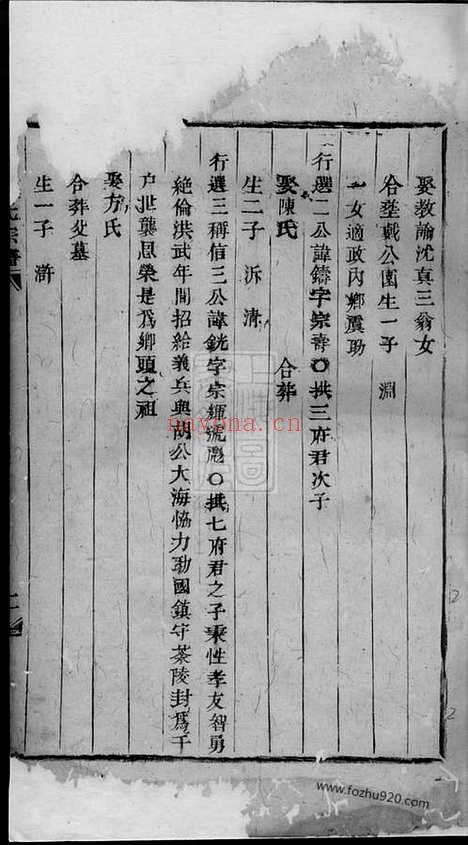 娶教諭沈真三翁女
合塟戴公園生一子 淵
一女適政內鄉震助
行選二公諱鑄字宗壽〇拱三府君次子
娶陳氏 合葬
生二子 泝 清
行選三稱信三公諱銑字宗 號彪〇拱七府君之子秉性孝友智勇
絕倫洪武年間招給義兵與胡公大海恊力勷國鎮守茶陵封爲千
户世襲恩榮是爲鄉頭之祖
娶方氏
合葬父墓
生一子 滸
宗譜
nayona.cn
www.fozhu920.com